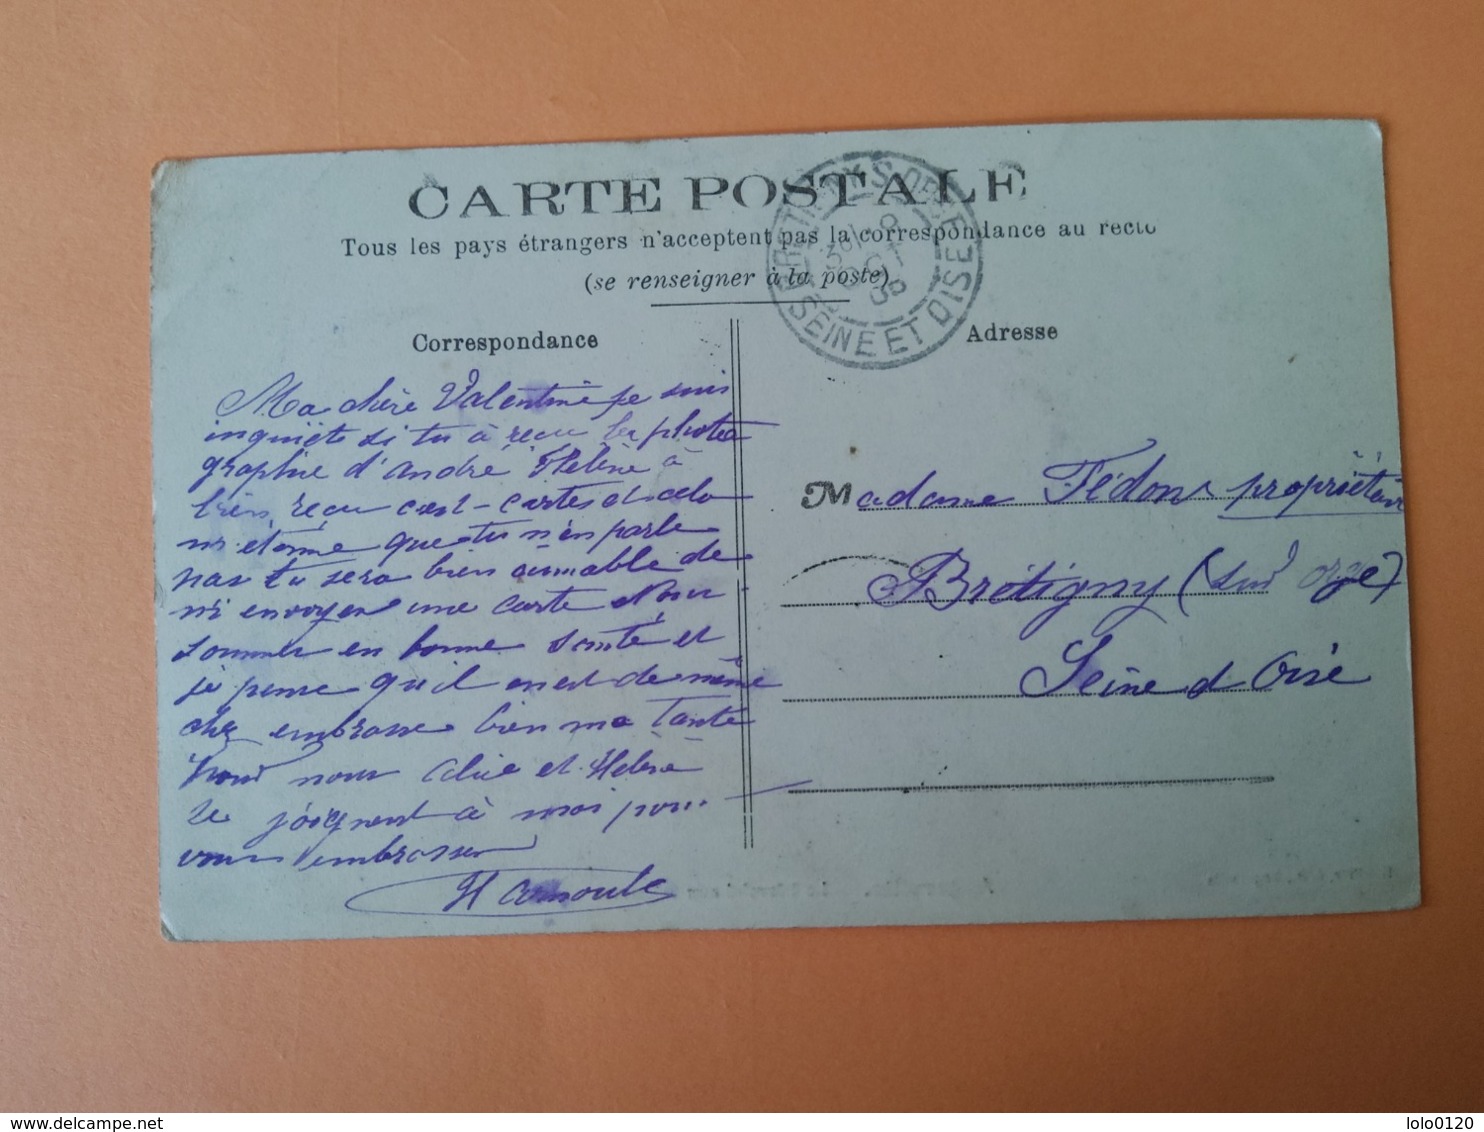 CARTE POSTALE
Tous les pays étrangers n'acceptent pas la correspondance au recto
(se renseigner à la poste)
BRETIGNY S. ORGE
SEINE ET OISE
Correspondance
Adresse
Ma chère Valentine je suis
inquiète si tu à recu la photo
graphie d'andré Hélène à
bien reçu ces cartes et cela
m'etonne que tu n'en parle
pas tu sera bien aimable de
m'envoyer une carte Nous
sommes en bonne santé et
je pense qu'il en est de même
chez embrasse bien ma Tante
pour nous Alice et Hélène
se joignent à moi pour
vous embrasser
Madame Fédon propriétaire
Brétigny (sur orge)
Seine et Oise
delcampe.net
lolo0120